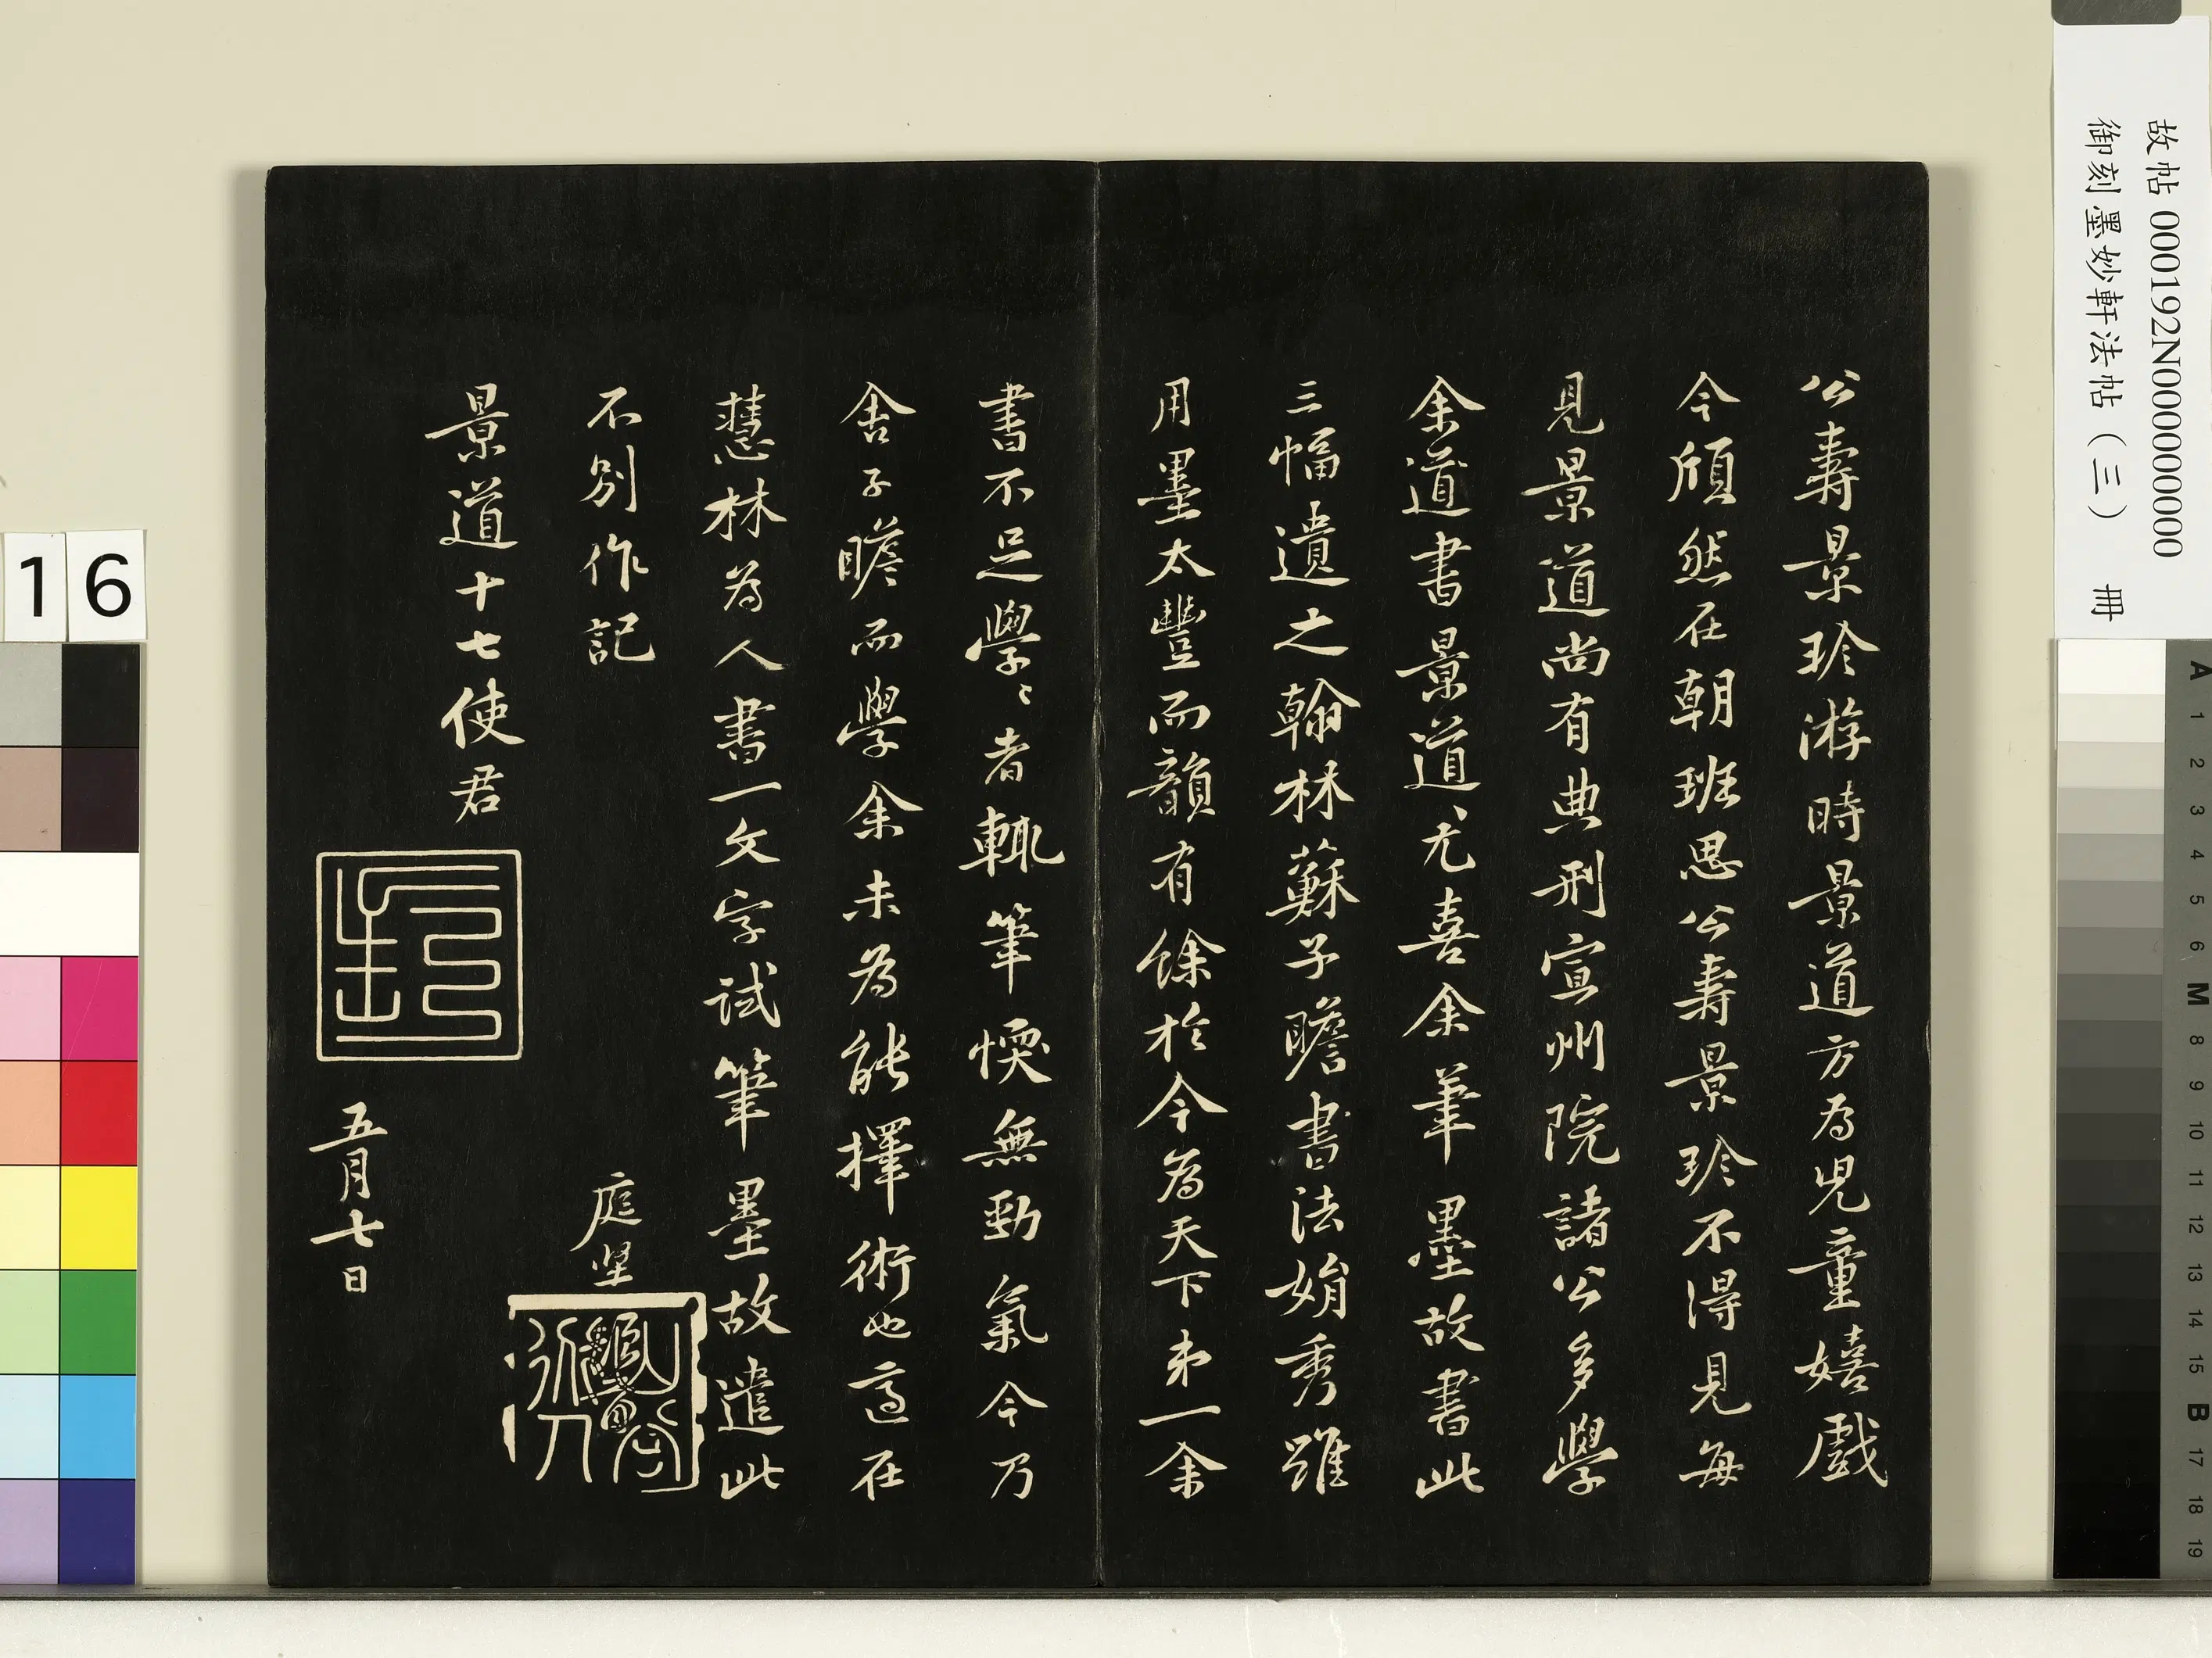 故帖 000192N000000000
御刻墨妙軒法帖（三） 冊
公壽景珍游時景道方為児童嬉戲
今頎然在朝班思公壽景珍不得見每
見景道尚有典刑宣州院諸公多學
余道書景道尤喜余筆墨故書此
三幅遺之翰林蘇子瞻書法娟秀雖
用墨太豐而韻有餘於今為天下弟一余
書不足學〻者輙筆愞無勁氣今乃
舍子瞻而學余未為能擇術也適在
慧林為人書一文字試筆墨故遣此
不別作記
庭堅
景道十七使君
封
五月七日
16
A 1 2 3 4 5 6 M 8 9 10 11 12 13 14 15 B 17 18 19